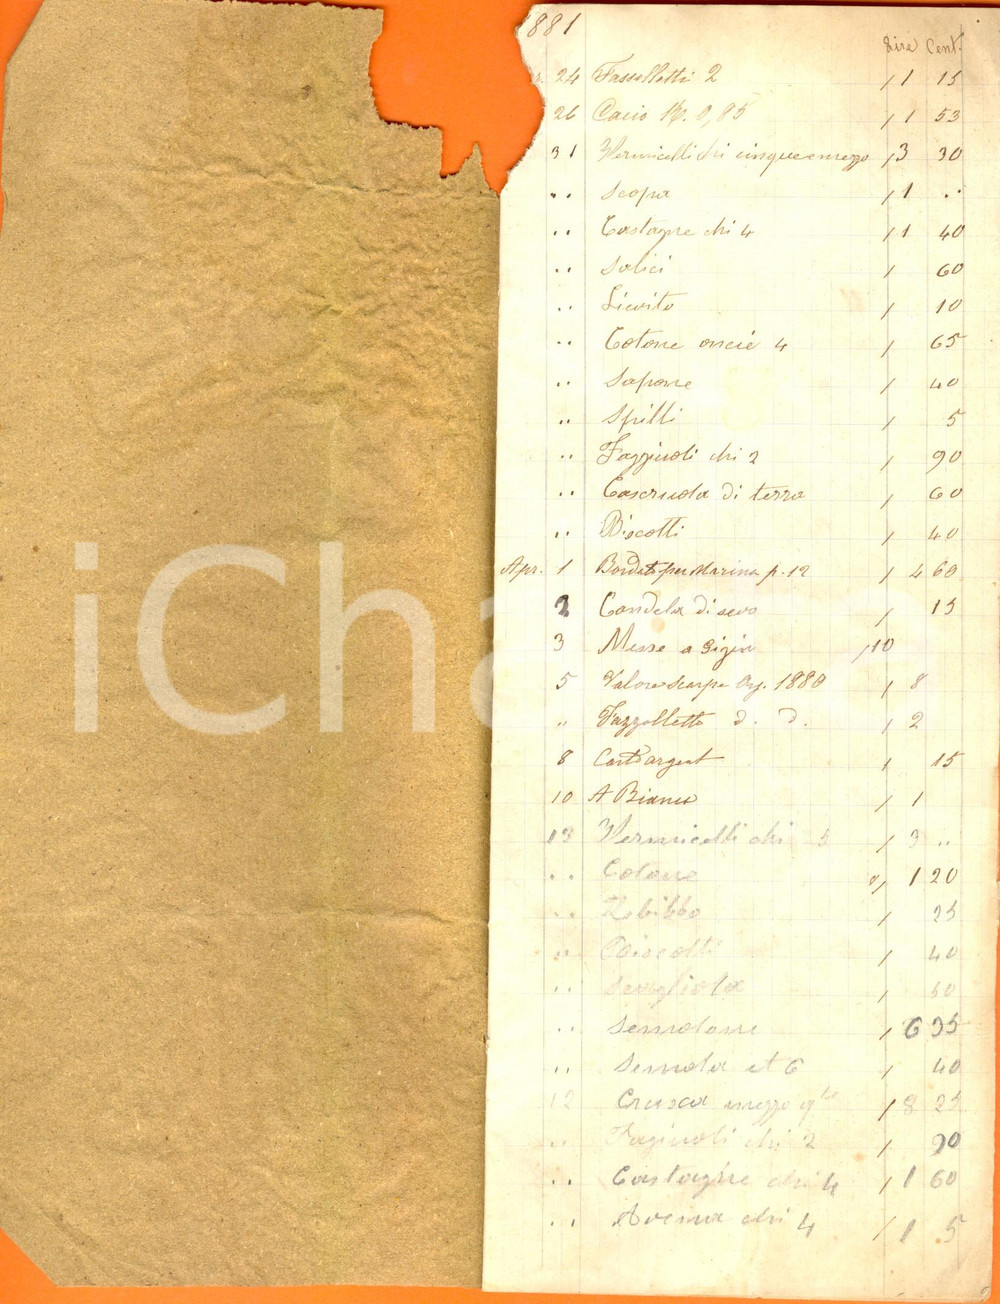 1881
Lire Cent.
24 Fassolletti 2 / 1 15
26 Cacio K. 0,85 / 1 53
31 Vermicelli chi cinque e mezzo / 3 30
" Scopa / 1 "
" Castagne chi 4 / 1 40
" Salici / 60
" Lievito / 10
" Cotone oncie 4 / 65
" Sapone / 40
" Spilli / 5
" Faggiuoli chi 2 / 90
" Casseruola di terra / 60
" Biscotti / 40
Apr. 1 Bordato per Marina p. 12 / 4 60
2 Candela di sevo / 15
3 Messe a Gigin / 10
5 Valore scarpe Ag. 1880 / 8
" Fazzoletto d. d. / 2
8 Cart argent / 15
10 A Bianco / 1
13 Vermicelli chi 5 / 3 "
" Cotone / 1 20
" Zebibbo / 25
" Biscotti / 40
" Scagliola / 50
" Semolone / 6 35
" Semola et 6 / 40
12 Crusca mezzo qle / 8 25
" Fagiuoli chi 2 / 90
" Castagne chi 4 / 1 60
" Avena chi 4 / 1 5
iCha